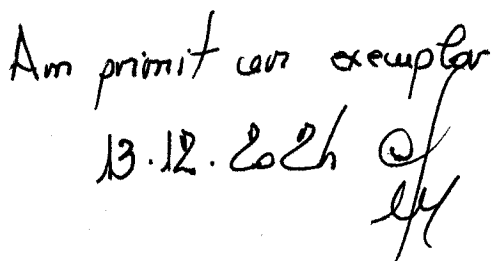 Am primit un exemplar
13.12.2024